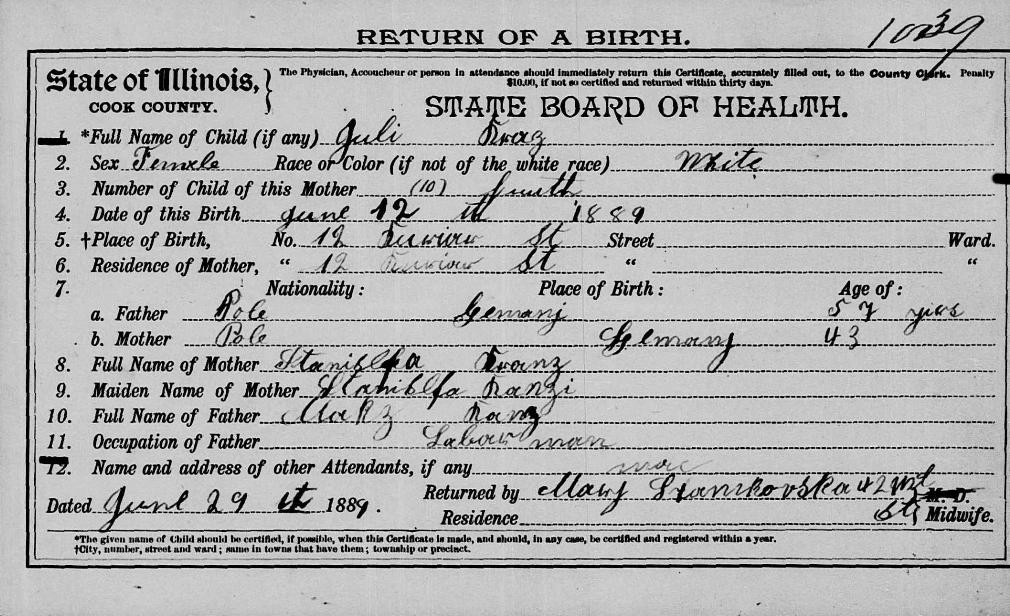 1039
RETURN OF A BIRTH.
State of Illinois,
COOK COUNTY.
The Physician, Accoucheur or person in attendance should immediately return this Certificate, accurately filled out, to the County Clerk. Penalty
$10.00, if not so certified and returned within thirty days.
STATE BOARD OF HEALTH.
1. *Full Name of Child (if any) Juli
2. Sex Female Race or Color (if not of the white race) White
3. Number of Child of this Mother (10)
4. Date of this Birth June 12 th 1889
5. †Place of Birth, No. 12 St Street Ward.
6. Residence of Mother, " 12 St " "
7. Nationality: Place of Birth: Age of:
a. Father Pole Gemanj 57 yirs
b. Mother Pole Gemanj 43
8. Full Name of Mother Stanislfa Kranz
9. Maiden Name of Mother Stanislfa Kanzi
10. Full Name of Father Kanz
11. Occupation of Father Labor man
12. Name and address of other Attendants, if any
Dated June 29 th 1889. Returned by Marj Stanikovska 42 M. D.
Residence St Midwife.
*The given name of Child should be certified, if possible, when this Certificate is made, and should, in any case, be certified and registered within a year.
†City, number, street and ward; same in towns that have them; township or precinct.